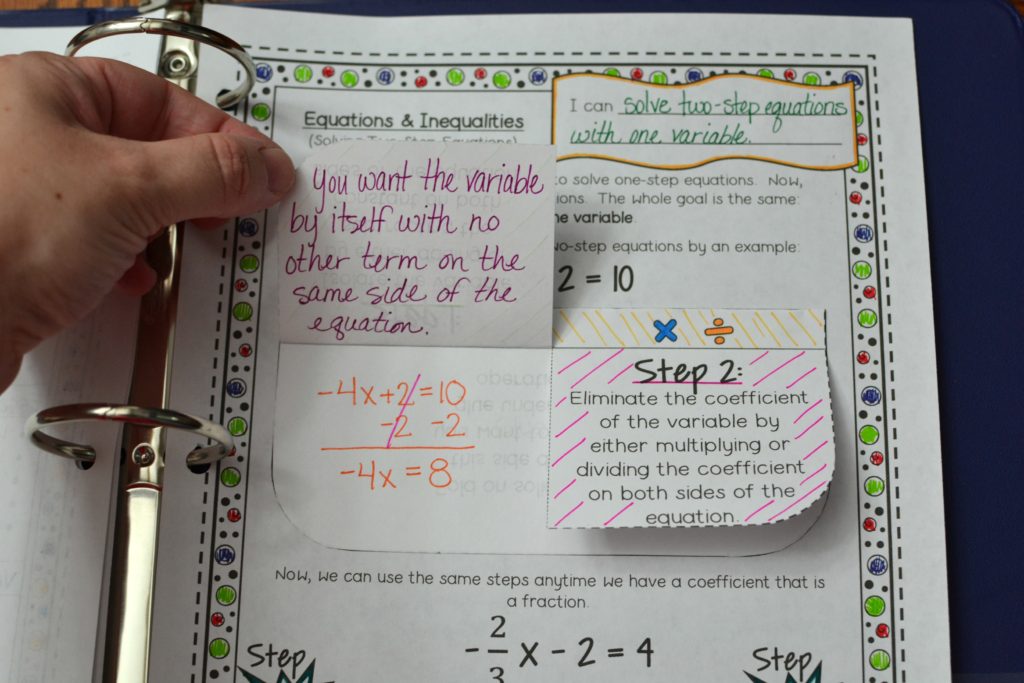 Equations & Inequalities
I can solve two-step equations
with one variable.
You want the variable
by itself with no
other term on the
same side of the
equation.
to solve one-step equations. Now,
ions. The whole goal is the same:
he variable.
wo-step equations by an example:
2 = 10
-4x+2=10
-2 2
-4x = 8
× ÷
Step 2:
Eliminate the coefficient
of the variable by
either multiplying or
dividing the coefficient
on both sides of the
equation.
Now, we can use the same steps anytime we have a coefficient that is
a fraction.
-2/3 x - 2 = 4
Step
Step